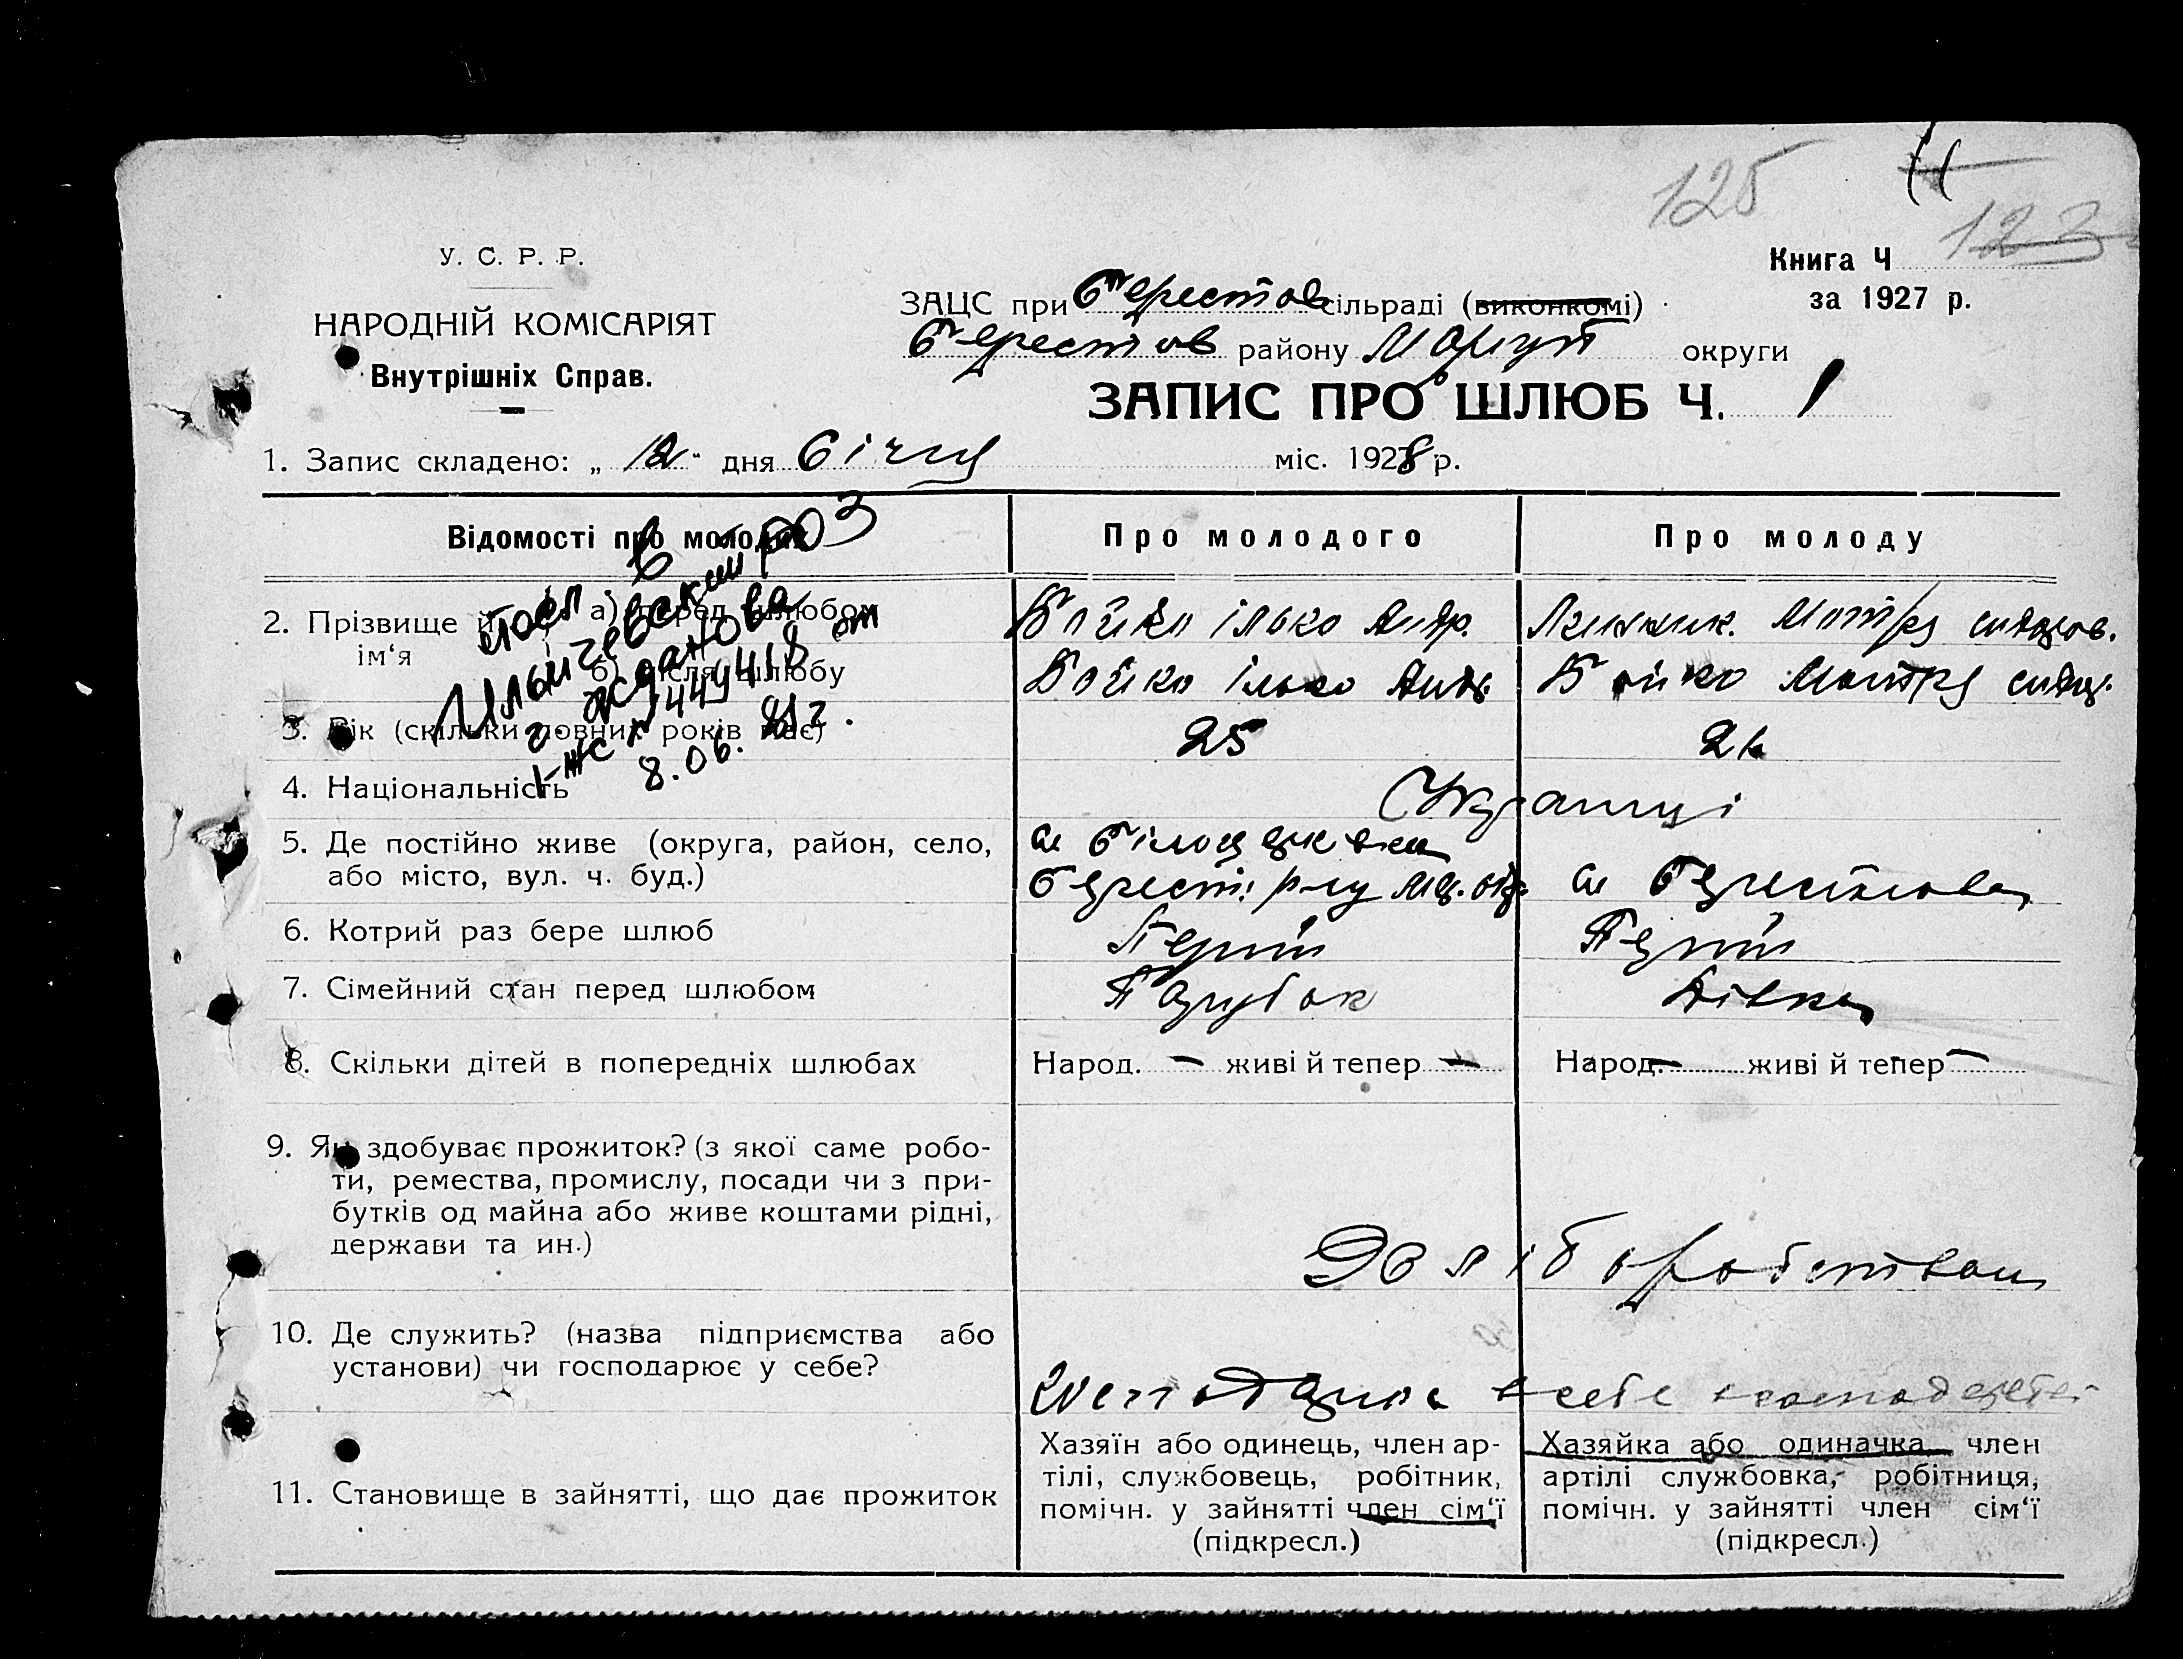 125
11
123
У. С. Р. Р.
НАРОДНІЙ КОМІСАРІЯТ
Внутрішніх Справ.
Книга Ч
за 1927 р.
ЗАЦС при Берестов сільраді (виконкомі)
Берестов району Маріуп округи
ЗАПИС ПРО ШЛЮБ Ч. 1
1. Запис складено: „ 12 " дня Січня міс. 1928 р.
Відомості про молодих
Про молодого
Про молоду
2. Прізвище й ім‘я
а) перед шлюбом
Бойко Ілько Андр.
Мотря
б) після шлюбу
Бойко Ілько Андр.
Бойко Мотря
3. Вік (скільки повних років має)
25
21
4. Національність
Українці
5. Де постійно живе (округа, район, село,
або місто, вул. ч. буд.)
с. Білоцерківка
Берест. р-ну Мар. окр.
с. Берестове
6. Котрий раз бере шлюб
Перший
Перший
7. Сімейний стан перед шлюбом
Парубок
Дівка
8. Скільки дітей в попередніх шлюбах
Народ. — живі й тепер —
Народ. — живі й тепер —
9. Як здобуває прожиток? (з якої саме робо-
ти, ремества, промислу, посади чи з при-
бутків од майна або живе коштами рідні,
держави та ин.)
Хліборобством
10. Де служить? (назва підприємства або
установи) чи господарює у себе?
в себе
11. Становище в зайнятті, що дає прожиток
Хазяїн або одинець, член ар-
тілі, службовець, робітник,
помічн. у зайнятті член сім‘ї
(підкресл.)
Хазяйка або одиначка член
артілі службовка, робітниця,
помічн. у зайнятті член сім‘ї
(підкресл.)
в
Ильичевский РОЗ
г. Жданова
8.06.